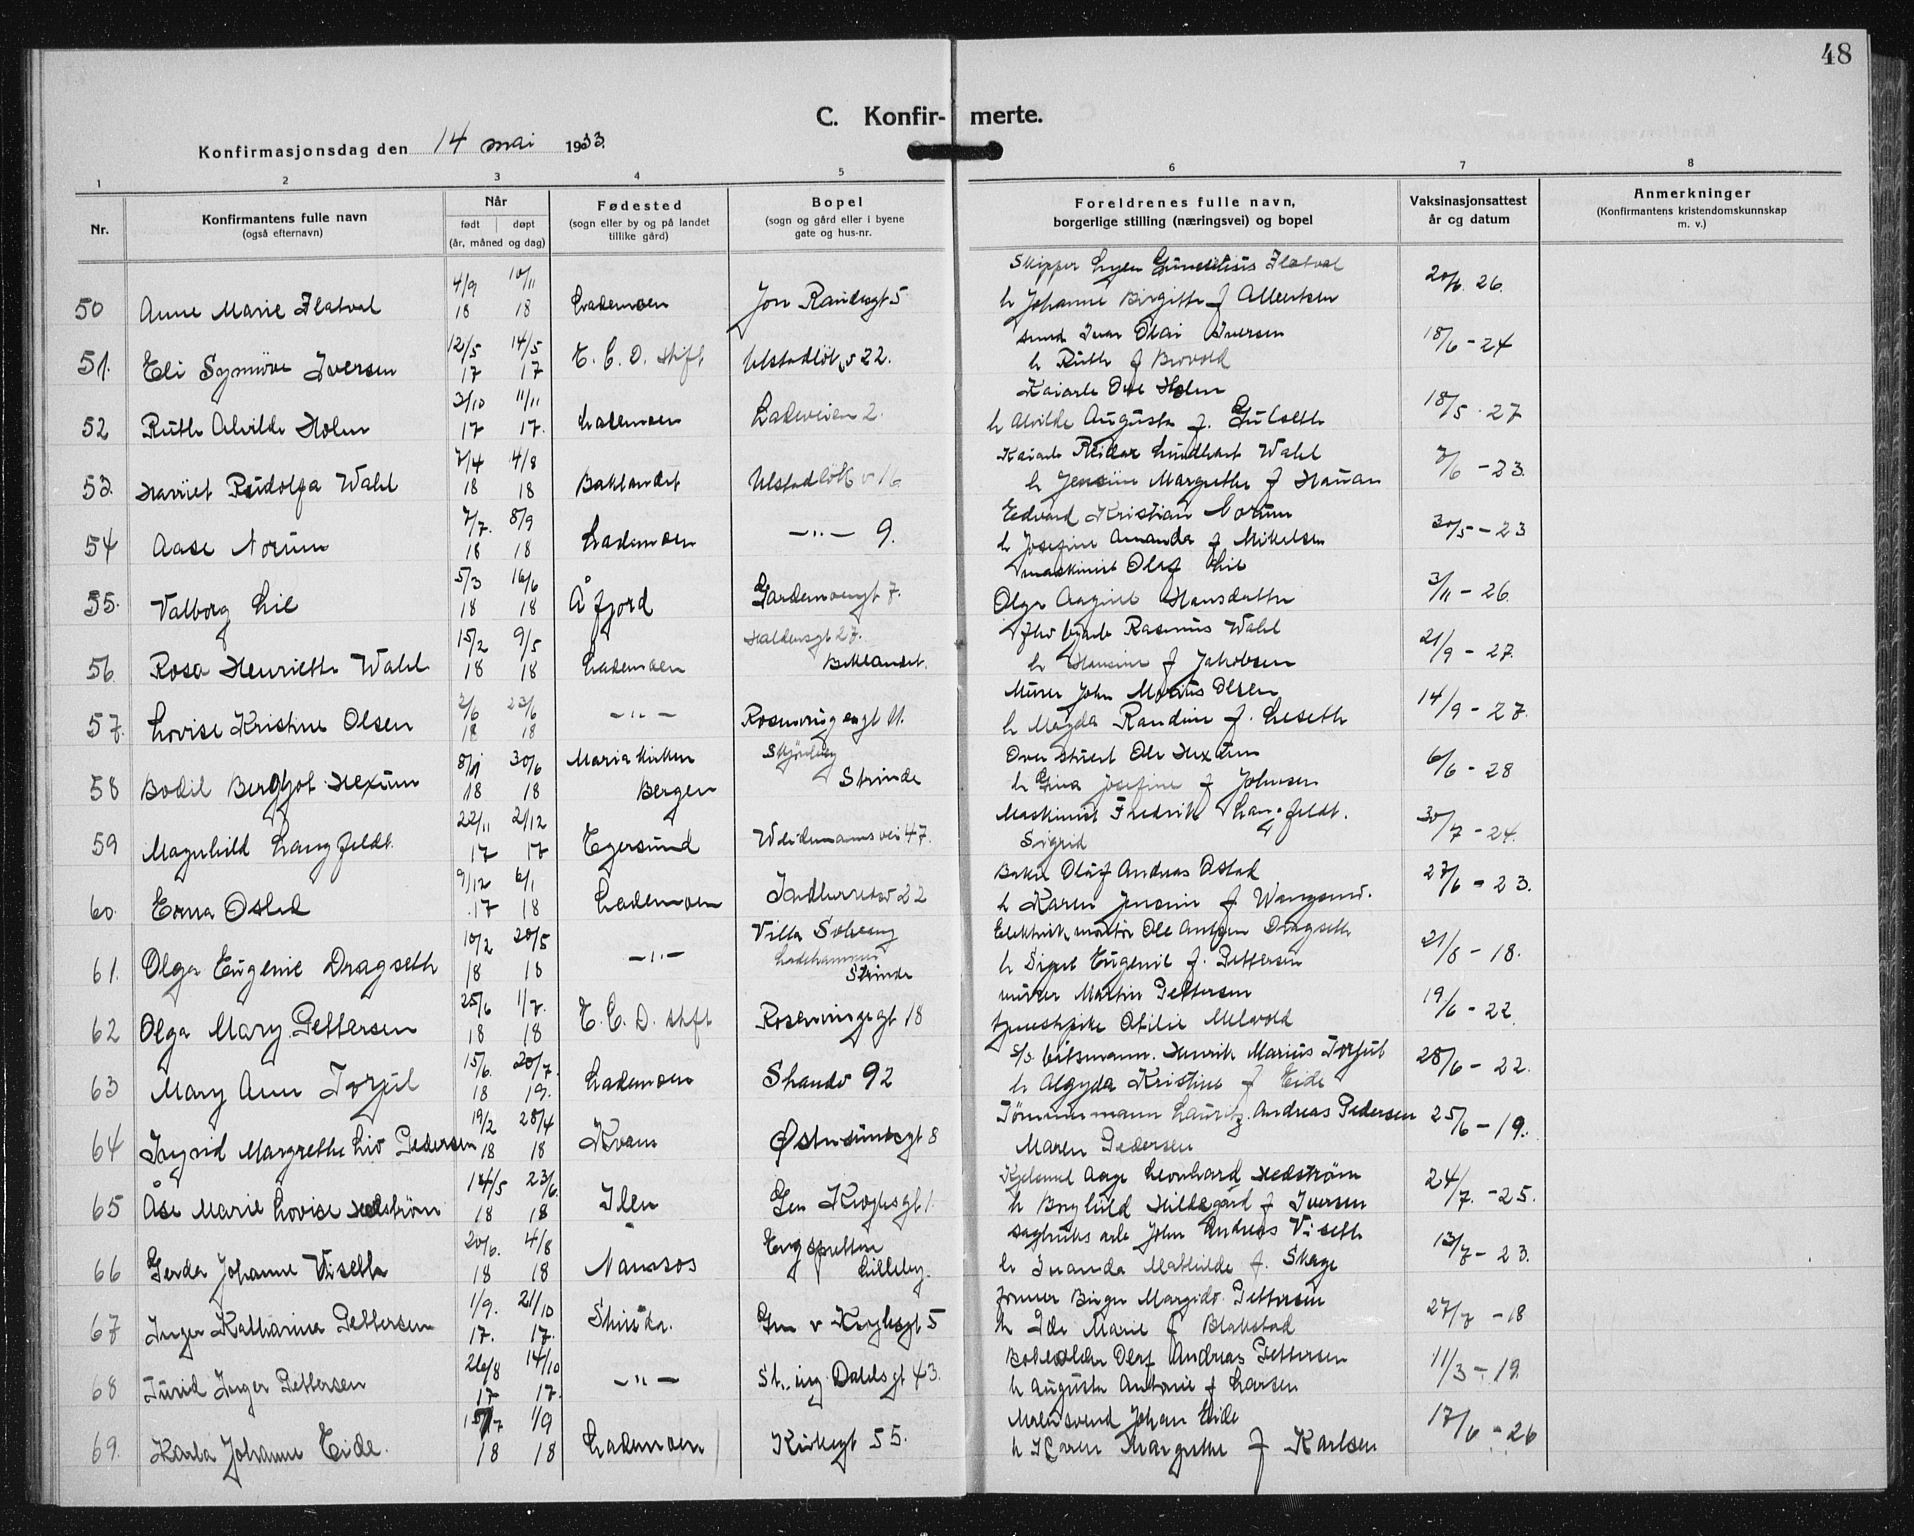 48
C. Konfir- merte.
Konfirmasjonsdag den 14 mai 1933.
1 2 3 4 5 6 7 8
Nr.
Konfirmantens fulle navn
(også efternavn)
Når
født døpt
(år, måned og dag)
Fødested
(sogn eller by og på landet
tillike gård)
Bopel
(sogn og gård eller i byene
gate og hus-nr.
Foreldrenes fulle navn,
borgerlige stilling (næringsvei) og bopel
Vaksinasjonsattest
år og datum
Anmerkninger
(Konfirmantens kristendomskunnskap
m. v.)
4/9 10/11 Skipper Flatval 20/6 26.
50 Anne Marie Flatval 18 18 Lademoen Jon Raudesgt 5 h Johanne Birgitte f Albertsen
12/5 14/5 Ivar Olai Iversen 18/6 - 24
51. Eli Synnøve Iversen 17 17 E. C. D. stift Ulstadløk v 22. h Ruth f Brovold
3/10 11/11 Kaiarb Ove Holm 18/5 . 27
52 Ruth Alvilde Holm 17 17. Lademoen Ladeveien 2. h Alvilde Augusta f. Gulseth
7/4 4/8 Kaiarb Reidar Lindhart Wahl 7/6 - 23.
53. Harriet Ruidolfa Wahl 18 18 Baklandet Ulstadløk v 16 h Jensine Margrethe f Hauan
7/7. 8/9 Edvard Kristian Norum 30/5 - 23
54 Aase Norum 18 18 Lademoen — " — 9. h Josefine Amanda f Mikkelsen
5/3 16/6 maskinist Olaf Lie 3/11 - 26.
55. Valborg Lie 18 18 Åfjord Gardemoengt 7. Olga Hansdatter
15/2 9/5 Haldensgt 27. Rasmus Wahl 21/9 - 27.
56. Rosa Henriette Wahl 18 18 Lademoen Baklandet. h Hansine f Jakobsen
2/6 23/6 Murer John Marius Olsen 14/9 - 27.
57. Lovise Kristine Olsen 18 18 — " — Rosenvingengt 11. h Magda Randine f. Leseth
8/1 30/6 Maria kirken Skjønberg Overstuert Ole Hexum 6/6 - 28
58 Bodil Bergljot Hexum 18 18 Bergen Strinda h Gina Josefine f Johnsen
22/11 2/12 Maskinist Fredrik Langfeldt. 30/7 - 24.
59 Magnhild Langfeldt. 17 17 Egersund Weidemannsvei 47. Sigrid
9/12 6/1 Baker Olaf Andreas Østad 27/6 - 23.
60. Erna Østad 17 18 Lademoen Indherredsv 22 h Karen Jensine f
10/2 20/5 Villa Solveng Elektrik montør Ole Anton Dragseth 21/6 - 18.
61. Olga Eugenie Dragseth 18 18 — " — Ladehammer Strinda h Signe Eugenie f. Pettersen
25/6 1/7. murer Martin Pettersen 19/6 - 22.
62 Olga Mary Pettersen 18 18 E. C. D. stift Rosenvingegt 18 tjenestepike Otilie Melvold
15/6. 20/7. Båtsmann. Henrik Marius Torjul 28/6 - 22.
63 Mary Ann Torjul 18 19. Lademoen Strandv 92 h Algyda Kristine f Eide
19/2 28/4 Tømmermann Lauritz Andreas Pedersen 25/6 - 19.
64 Ingrid Margrethe Liv Pedersen 18 18 Kvam Østersundsgt 8 Maren Pedersen
14/5 23/6. Kjelsmed Aage Leonhard Hedstrøm 24/7. - 25.
65 Åse Marie Lovise Hedstrøm 18 18 Ilen Gen Kroghsgt 1 h Borghild Hildegard f Iversen
20/6. 4/8 Engsletten sagbruks arb John Andreas Viseth 13/7 - 23.
66 Gerda Johanne Viseth 18 18 Namsos Lilleby. h Inanda Mathilde f. Skage
1/9. 21/10 Birger Margido Pettersen 27/7 - 18
67 Inger Katharina Pettersen 17. 17. Strinda. Gen v Kroghsgt 5 h Ida Marie f Blakstad
26/8 14/10 Bokholder Olaf Andreas Pettersen 11/3 - 19.
68 Turid Inger Pettersen 17 17. — " — St. ing. Dahls gt 43. h Augusta Antonie f Larsen
15/7 1/9 Malersvend Johan Eide 17/6 - 26
69. Karla Johanne Eide. 18 18 Lademoen Kirkegt 55. h Karen Margrethe f Karlsen